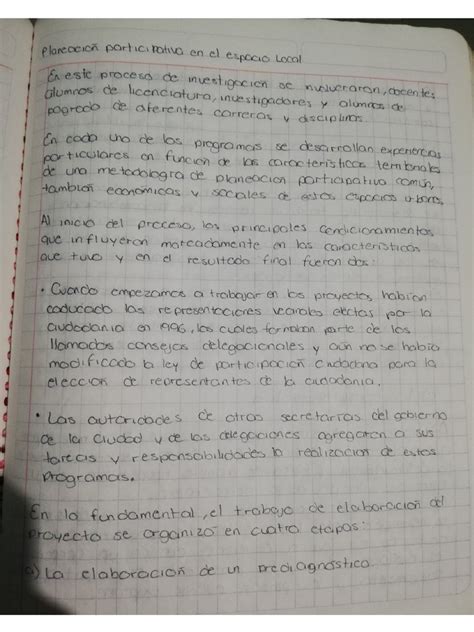 Planeación participativa en el espacio Local
En este proceso de investigación se involucraron, docentes,
alumnos de licenciatura, investigadores y alumnos de
posgrado de diferentes carreras y disciplinas.
En cada uno de los programas se desarrollan experiencias
particulares en función de las características territoriales
de una metodología de planeación participativa común,
también económicas y sociales de estos espacios urbanos.
Al inicio del proceso, los principales condicionamientos
que influyeron marcadamente en las características
que tuvo y en el resultado final fueron dos:
• Cuando empezamos a trabajar en los proyectos, habían
caducado las representaciones vecinales electas por la
ciudadanía en 1996, los cuales formaban parte de los
llamados consejos delegacionales y aún no se había
modificado la ley de participación ciudadana para la
elección de representantes de la ciudadanía.
• Las autoridades de otras secretarías del gobierno
de la ciudad y de las delegaciones agregaron a sus
tareas y responsabilidades la realización de estos
programas.
En lo fundamental, el trabajo de elaboración del
proyecto se organizó en cuatro etapas:
a) La elaboración de un prediagnóstico.